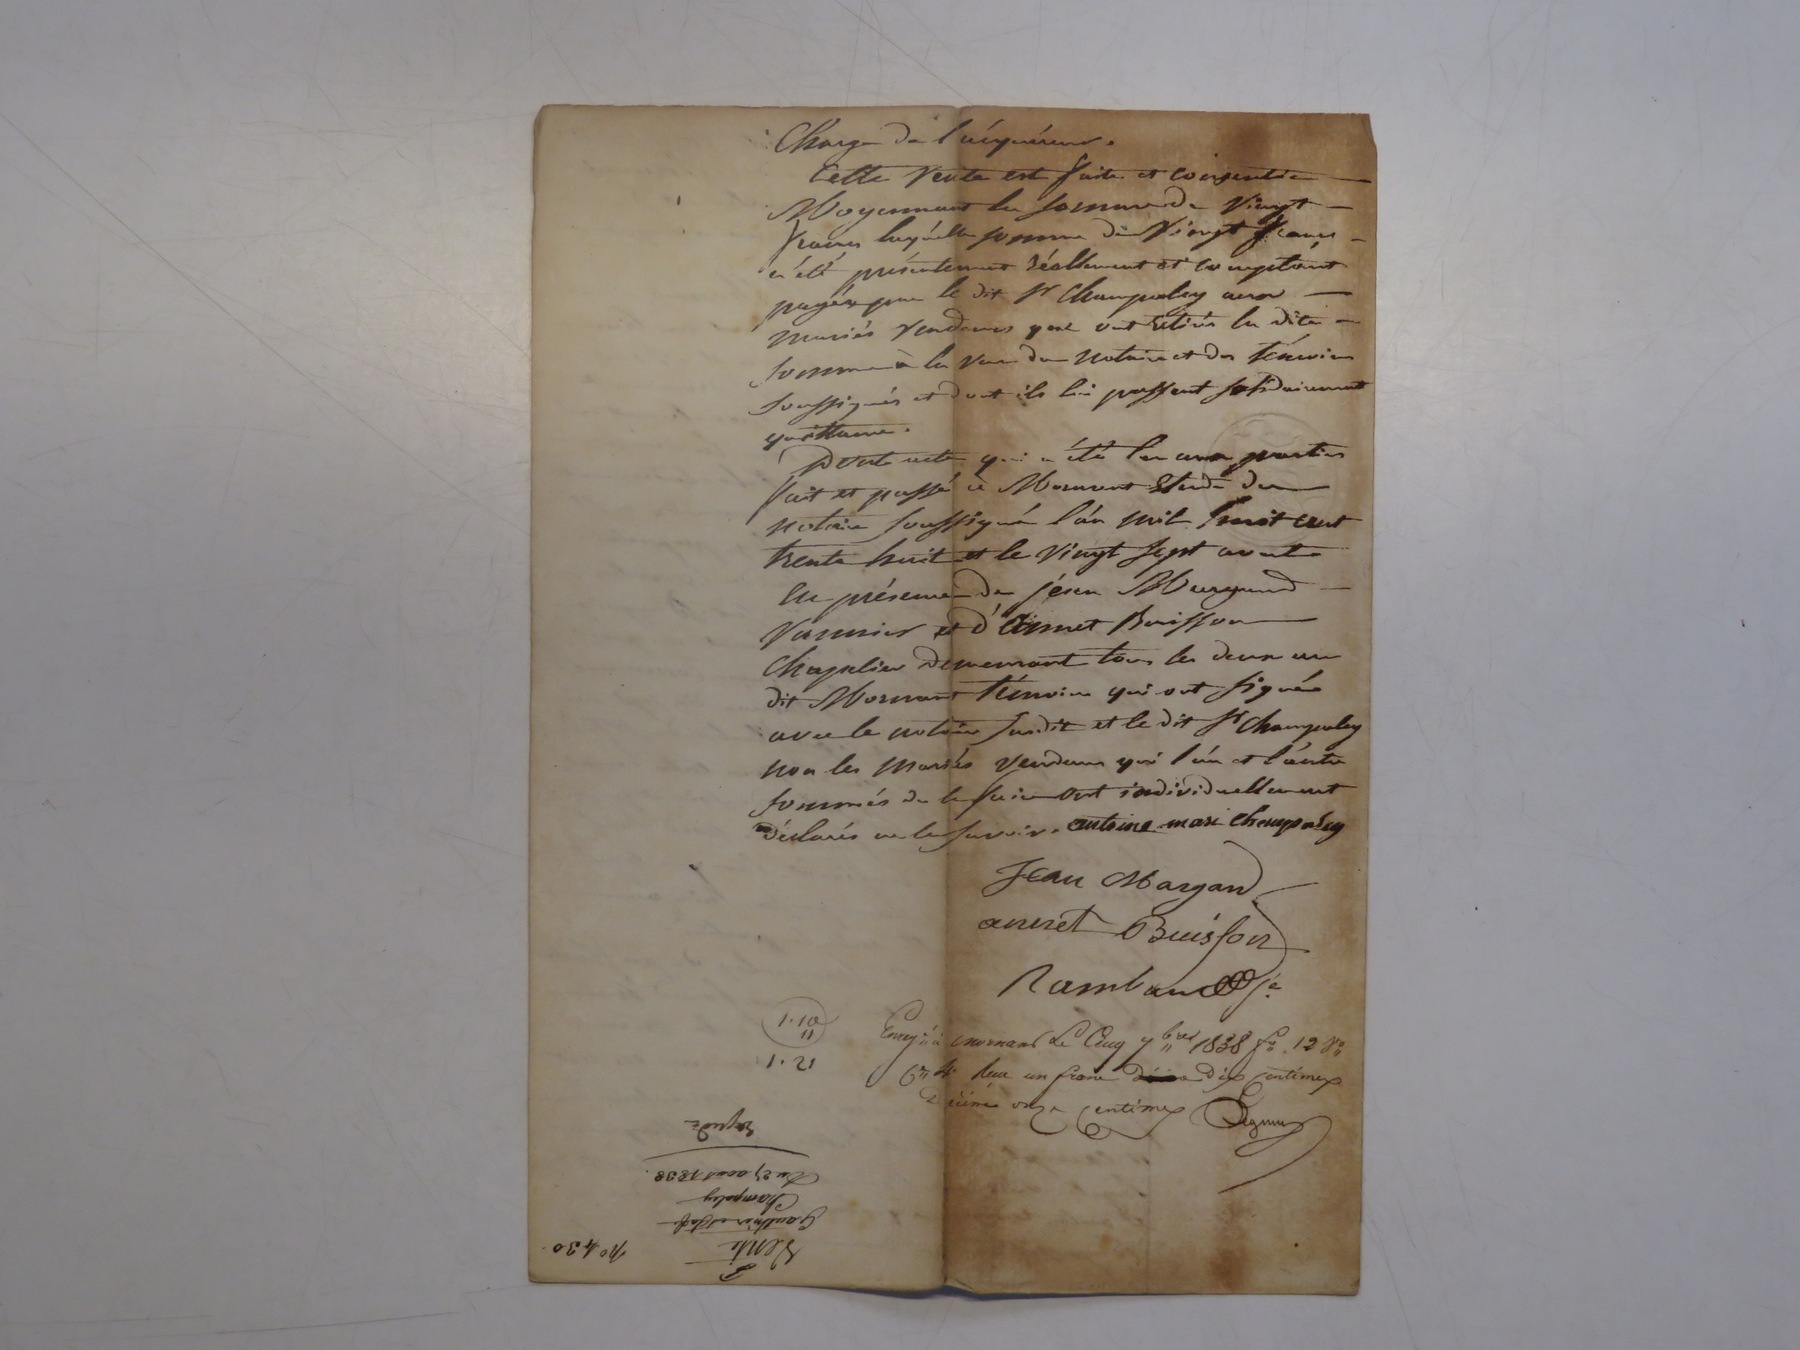 Charge de l'acquéreur.
Cette vente est faite et consentie
Moyennant la somme de Vingt
francs laquelle somme de Vingt francs
a été présentement réellement et comptant
payée par le dit Sr Champaley aux
mariés vendeurs qui ont retirés la dite
somme à la vue du notaire et des témoins
soussignés et dont ils lui passent solidairement
quittance.
Dont acte qui a été lu aux parties
fait et passé à Mornant Etude du
notaire soussigné l'an mil huit cent
trente huit et le vingt sept aout
En présence de jean Margand
Vannier et d'Annet Buisson
Chapelier demeurant tous les deux au
dit Mornant témoins qui ont signés
avec le notaire susdit et le dit Sr Champaley
non les mariés vendeurs qui l'un et l'autre
sommés de le faire ont individuellement
déclarés ne le savoir. antoine mari Champaley
Jean Margand
annet Buisson
Rambaud
Enreg. à mornant Le Cinq 7bre 1838 fo. 12 Vo
Co 4 Reçu un franc dix centimes
Décime onze centimes
1.10
11
12.1
Expédié
Du 27 aout 1838.
Champaley
Vente
no 430